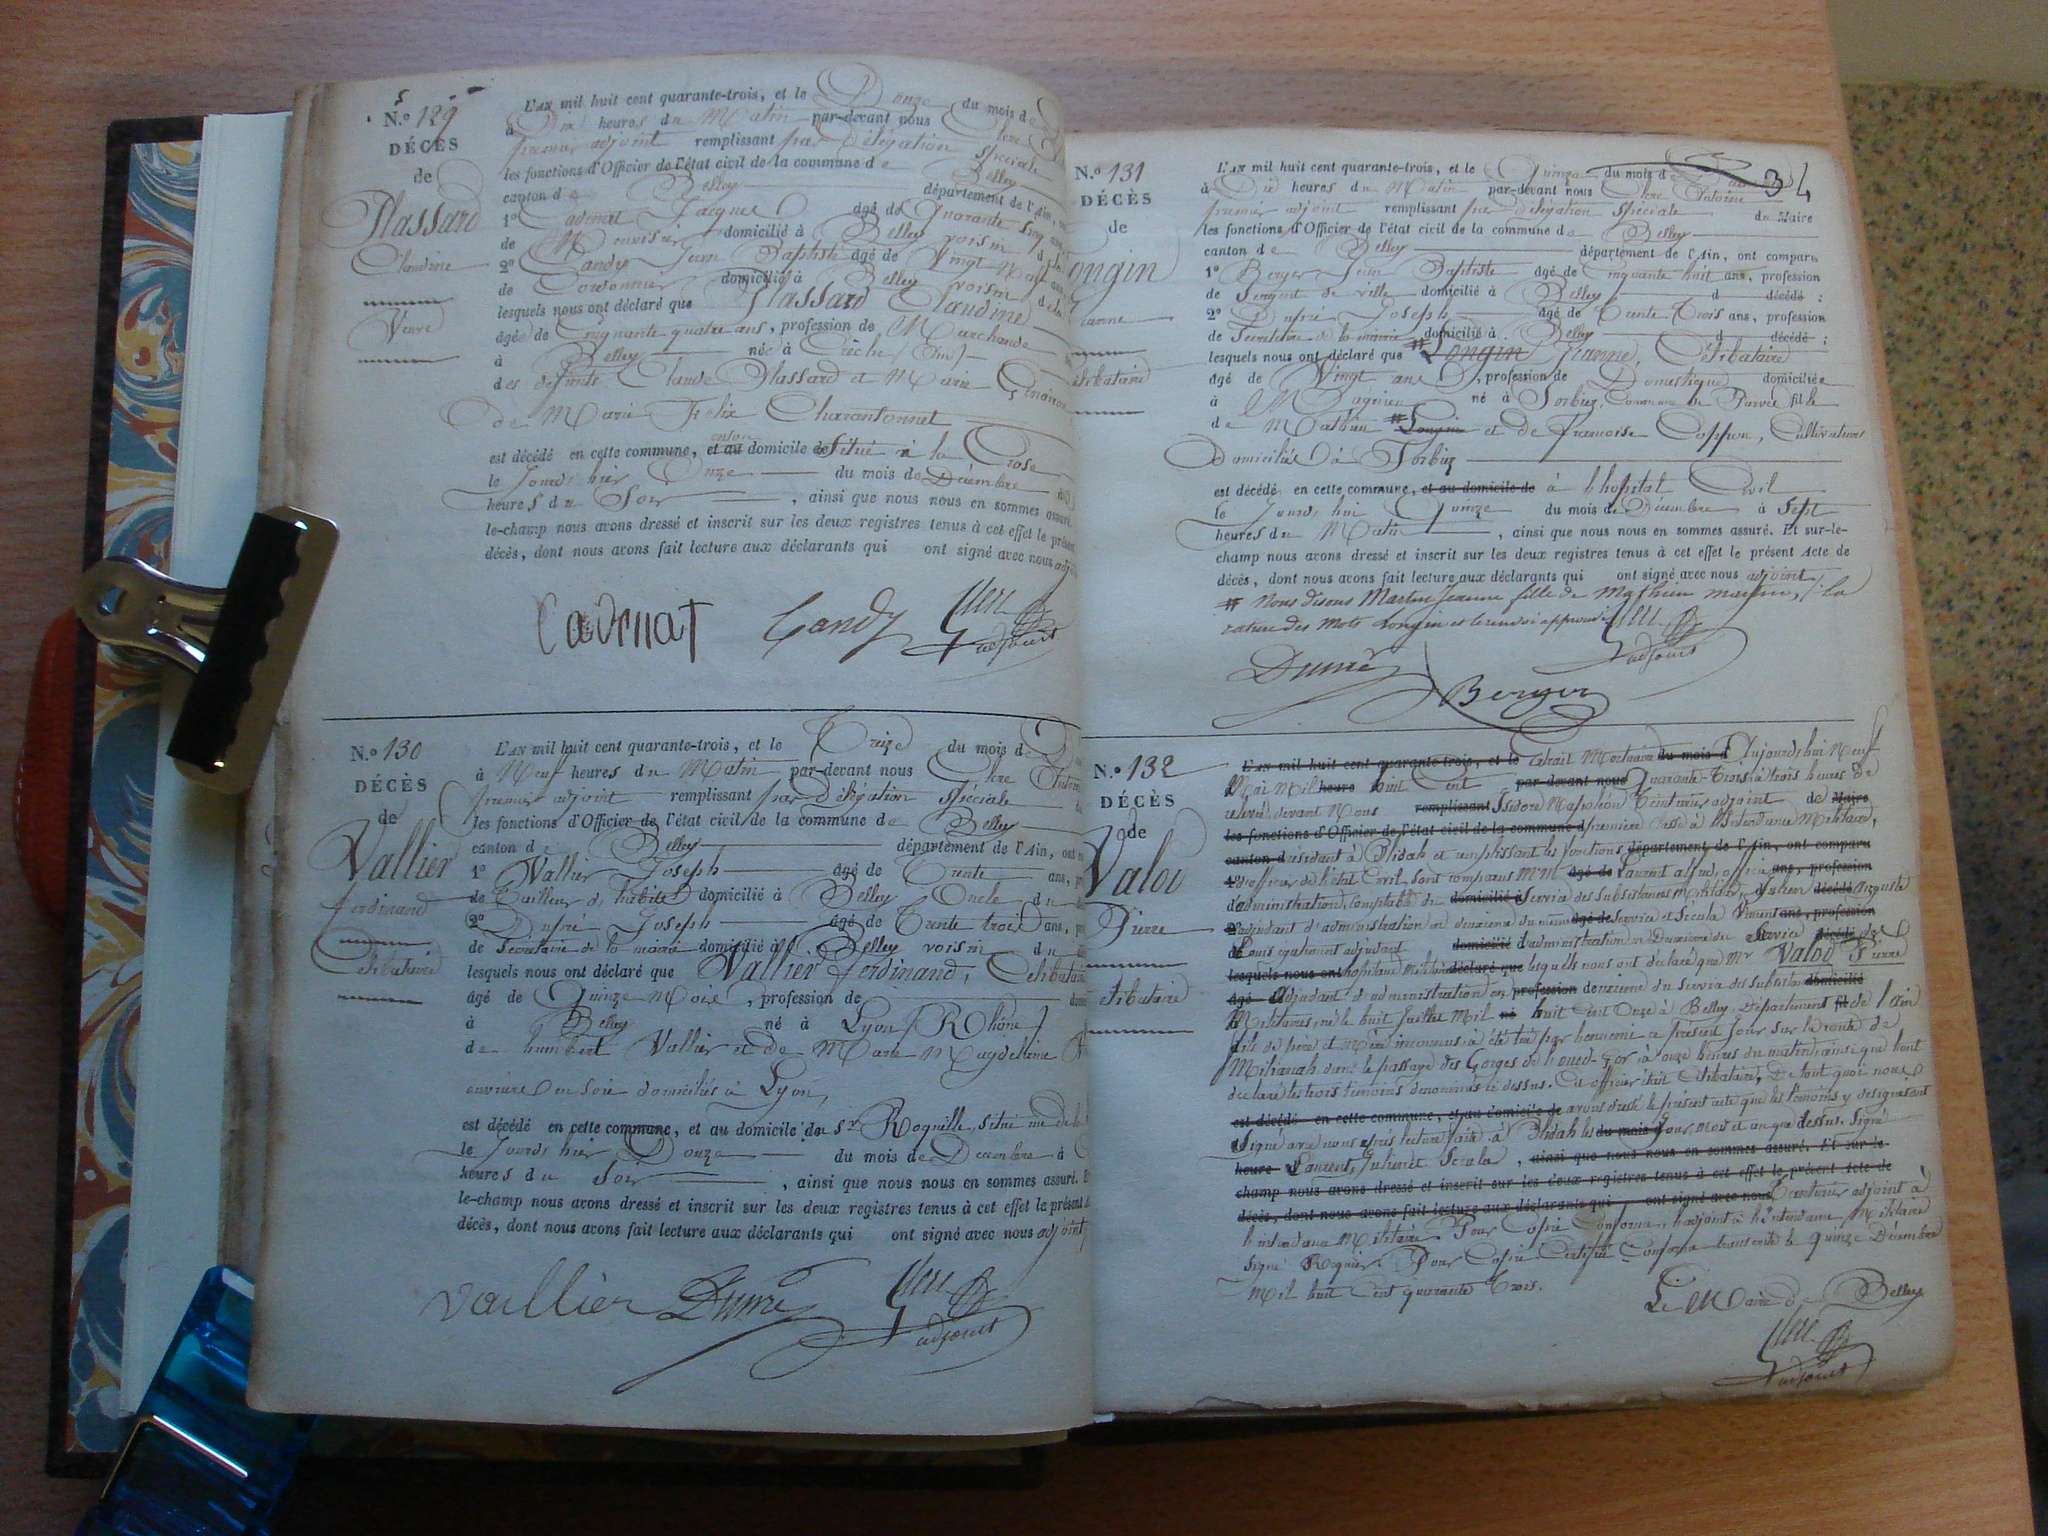 N.o 129
DÉCÈS
de
Plassard
Claudine
Veuve
L'AN mil huit cent quarante-trois, et le Douze du mois de
à Dix heures du Matin par-devant nous Clerc
premier adjoint remplissant par délégation spéciale
les fonctions d'Officier de l'état civil de la commune de Belley
canton de Belley département de l'Ain,
1o Cadenat Jacques âgé de Quarante cinq
de Menuisier domicilié à Belley voisin
2o Candy Jean Baptiste âgé de Vingt
de Cordonnier domicilié à Belley voisin
lesquels nous ont déclaré que Plassard Claudine
âgée de Cinquante quatre ans, profession de Marchande
à Belley née à
des défunts Claude Plassard et Marie
de Marie Félix Charantonnet
est décédé en cette commune, et au domicile de situé à la Crose
le Jourd'hier Onze du mois de Décembre
heures du Soir, ainsi que nous nous en sommes assuré.
le-champ nous avons dressé et inscrit sur les deux registres tenus à cet effet le présent
décès, dont nous avons fait lecture aux déclarants qui ont signé avec nous adjoint
Cadenat Candy Clerc
adjoint
N.o 130
DÉCÈS
de
Vallier
Ferdinand
Célibataire
L'AN mil huit cent quarante-trois, et le Treize du mois de
à Neuf heures du Matin par-devant nous Clerc Antoine
premier adjoint remplissant par délégation spéciale
les fonctions d'Officier de l'état civil de la commune de Belley
canton de Belley département de l'Ain, ont
1o Vallier Joseph âgé de Trente ans,
de Tailleur d'habits domicilié à Belley Oncle du
2o Dupré Joseph âgé de Trente trois ans,
de Secrétaire de la mairie domicilié à Belley voisin du
lesquels nous ont déclaré que Vallier Ferdinand, Célibataire
âgé de Quinze Mois, profession de
à Belley né à Lyon (Rhône)
de humbert Vallier et de Marie Magdeleine
ouvrière en soie domiciliés à Lyon,
est décédé en cette commune, et au domicile du Sr Roquille, situé rue de
le Jourd'hier Douze du mois de Décembre à
heures du Soir, ainsi que nous nous en sommes assuré.
le-champ nous avons dressé et inscrit sur les deux registres tenus à cet effet le présent
décès, dont nous avons fait lecture aux déclarants qui ont signé avec nous adjoint
vallier Dupré Clerc
adjoint
34
N.o 131
DÉCÈS
de
Longin
Jeanne
Célibataire
L'AN mil huit cent quarante-trois, et le Quinze du mois de
à Dix heures du Matin par-devant nous Clerc Antoine
premier adjoint remplissant par délégation spéciale du Maire
les fonctions d'Officier de l'état civil de la commune de Belley
canton de Belley département de l'Ain, ont comparu
1o Berger Jean Baptiste âgé de Cinquante huit ans, profession
de Sergent de ville domicilié à Belley d décédé ;
2o Dupré Joseph âgé de Trente Trois ans, profession
de Secrétaire de la mairie domicilié à Belley d décédé ;
lesquels nous ont déclaré que # Longin Jeanne, Célibataire
âgé de Vingt ans, profession de Domestique domiciliée
à Magnieu né à Sorbier, Commune de fille
de Mathieu # Longin et de françoise Coppon, Cultivateurs
Domiciliés à Sorbier
est décédé en cette commune, et au domicile de à l'hopital Civil
le Jourd'hui Quinze du mois de Décembre à Sept
heures du Matin, ainsi que nous nous en sommes assuré. Et sur-le-
champ nous avons dressé et inscrit sur les deux registres tenus à cet effet le présent Acte de
décès, dont nous avons fait lecture aux déclarants qui ont signé avec nous adjoint
# Nous disons Martin Jeanne fille de Mathieu martin, la
rature des mots Longin et le renvoi approuvé Clerc
Dupré adjoint
Berger
N.o 132
DÉCÈS
de
Valod
Pierre
Célibataire
L'AN mil huit cent quarante-trois, et le Extrait Mortuaire du mois d Aujourd'hui Neuf
Mai Mil heure huit Cent par-devant nous Quarante-Trois à trois heures de
relevée devant Nous remplissant Isidore Napoléon Ceinturier adjoint de Maire
les fonctions d'Officier de l'état civil de la commune d première classe à l'Intendance Militaire,
canton d résidant à Blidah et remplissant les fonctions département de l'Ain, ont comparu
1o d'officier de l'état Civil, sont comparus MM. âgé de Laurent alfred, officier ans, profession
d'administration, comptable du domicilié à Service des subsistances Militaires, Julien décédé auguste
2o adjudant d'administration en deuxième du même âgé de Service et Scala Vincent ans, profession
de Louis également adjudant domicilié d'administration en Deuxième du Service décédé des
lesquels nous ont hopitaux Militaires déclaré que lesquels nous ont déclaré que Mr Valod Pierre
âgé Adjudant d'administration en profession deuxième du service des subsistances domicilié
Militaires, né le huit Juillet Mil né huit Cent Onze à Belley, Département fil de l'ain
fils de père et Mère inconnus, a été tué par l'ennemi ce présent Jour sur la route de
Milianah dans le passage des Gorges de l'oued-ger à onze heures du matin, ainsi que l'ont
déclaré les trois témoins dénommés ci dessus. Cet officier était Célibataire, De tout quoi nous
est décédé en cette commune, et au domicile de avons dressé le présent acte que les témoins y désignés ont
Signé avec nous après lecture faite. à Blidah les du mois d Jour, mois et an que dessus. Signé
heure Laurent, Julien et Scala, ainsi que nous nous en sommes assuré. Et sur-le-
champ nous avons dressé et inscrit sur les deux registres tenus à cet effet le présent Acte de
décès, dont nous avons fait lecture aux déclarants qui ont signé avec nous Ceinturier adjoint à
l'intendance Militaire. Pour Copie Conforme, l'adjoint à l'Intendance Militaire
signé Rognier. Pour Copie Certifiée Conforme transcrite le Quinze Décembre
Mil huit Cent quarante Trois.
Le Maire de Belley
Clerc
adjoint